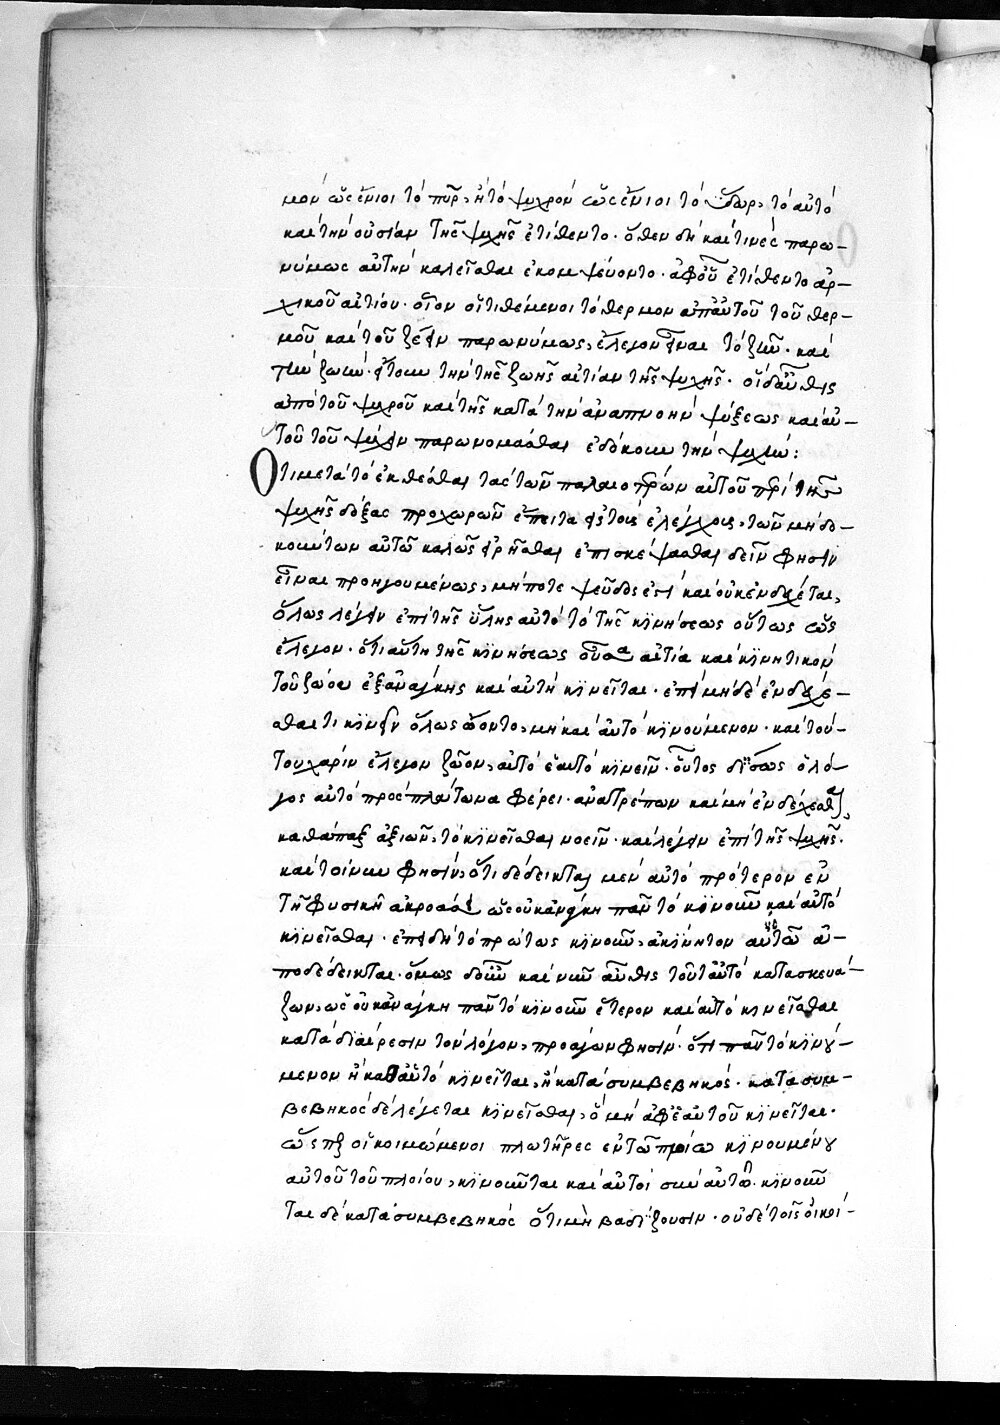 μὸν ὥς ἔνιοι τὸ πῦρ, ἢ τὸ ψυχρὸν ὥς ἔνιοι τὸ ὕδωρ, τὸ αὐτὸ
καὶ τὴν οὐσίαν τῆς ψυχῆς ἐτίθεντο. ὅθεν δὴ καί τινες παρω-
νύμως αὐτὴν καλεῖσθαι ἐκομψεύοντο. ἀφ' οὗ ἐτίθεντο ἀρ-
χικοῦ αἰτίου. οἷον οἱ τιθέμενοι τὸ θερμὸν ἀπ' αὐτοῦ τοῦ θερ-
μοῦ καὶ τοῦ ζεῖν παρωνύμως, ἔλεγον εἶναι τὸ ζῆν. καὶ
τὴν ζωὴν. ἤτοι τὴν τῆς ζωῆς αἰτίαν τῆς ψυχῆς. οἱ δ' αὖθις
ἀπὸ τοῦ ψυχροῦ καὶ τῆς κατὰ τὴν ἀναπνοὴν ψύξεως καὶ αὐ-
τοῦ τοῦ ψύχειν παρωνομάσθαι ἐδόκουν τὴν ψυχήν:
Ὅτι μετὰ τὸ ἐκθέσθαι τὰς τῶν παλαιοτέρων αὐτοῦ περὶ τῆς
ψυχῆς δόξας προχωρῶν ἔπειτα εἰς τοὺς ἐλέγχους, τῶν μὴ δο-
κούντων αὐτῷ καλῶς εἰρῆσθαι ἐπισκέψασθαι δεῖν φησὶν
εἶναι προηγουμένως, μήποτε ψεῦδός ἐστι καὶ οὐκ ἐνδέχεται,
ὅλως λέγειν ἐπὶ τῆς ὕλης αὐτὸ τὸ τῆς κινήσεως οὕτως ὥς
ἔλεγον. ὅτι αὕτη τῆς κινήσεως οὖσα αἰτία καὶ κινητικὸν
τοῦ ζώου ἐξ ἀνάγκης καὶ αὐτὴ κινεῖται. ἐπεὶ μὴ δὲ ἐνδέχε-
σθαι τι κινεῖν ὅλως ᾤοντο, μὴ καὶ αὐτὸ κινούμενον. καὶ τού-
του χάριν ἔλεγον ζῶον, αὐτὸ ἑαυτὸ κινεῖν. οὗτος δ' ἴσως ὁ λό-
γος αὐτὸ πρὸς πλάτωνα φέρει. ἀνατρέπων καὶ μὴ ἐνδέχεσθαι,
καθάπαξ ἀξιῶν, τὸ κινεῖσθαι νοεῖν. καὶ λέγειν ἐπὶ τῆς ψυχῆς.
καὶ τοίνυν φησὶν, ὅτι δέδεικται μὲν αὐτὸ πρότερον ἐν
τῇ φυσικῇ ἀκροάσει ὡς οὐκ ἀνάγκη πᾶν τὸ κινοῦν καὶ αὐτὸ
κινεῖσθαι. ἐπειδὴ τὸ πρώτως κινοῦν, ἀκίνητον αὐτῷ ἀ-
ποδέδεικται. ὅμως δ' οὖν καὶ νῦν αὖθις τοῦτ' αὐτὸ κατασκευά-
ζων, ὡς οὐκ ἀνάγκη πᾶν τὸ κινοῦν ἕτερον καὶ αὐτὸ κινεῖσθαι
κατὰ διαίρεσιν τὸν λόγον, προάγων φησὶν. ὅτι πᾶν τὸ κινού-
μενον ἢ καθ' αὑτὸ κινεῖται, ἢ κατὰ συμβεβηκός. κατὰ συμ-
βεβηκὸς δὲ λέγεται κινεῖσθαι, ὃ μὴ ἀφ' ἑαυτοῦ κινεῖται.
ὥσπερ οἱ κοιμώμενοι πλωτῆρες ἐν τῷ πλοίῳ κινουμένου
αὐτοῦ τοῦ πλοίου, κινοῦνται καὶ αὐτοὶ σὺν αὐτῷ. κινοῦν
ται δὲ κατὰ συμβεβηκὸς ὅτι μὴ βαδίζουσιν. οὐδὲ τοῖς οἰκεί-